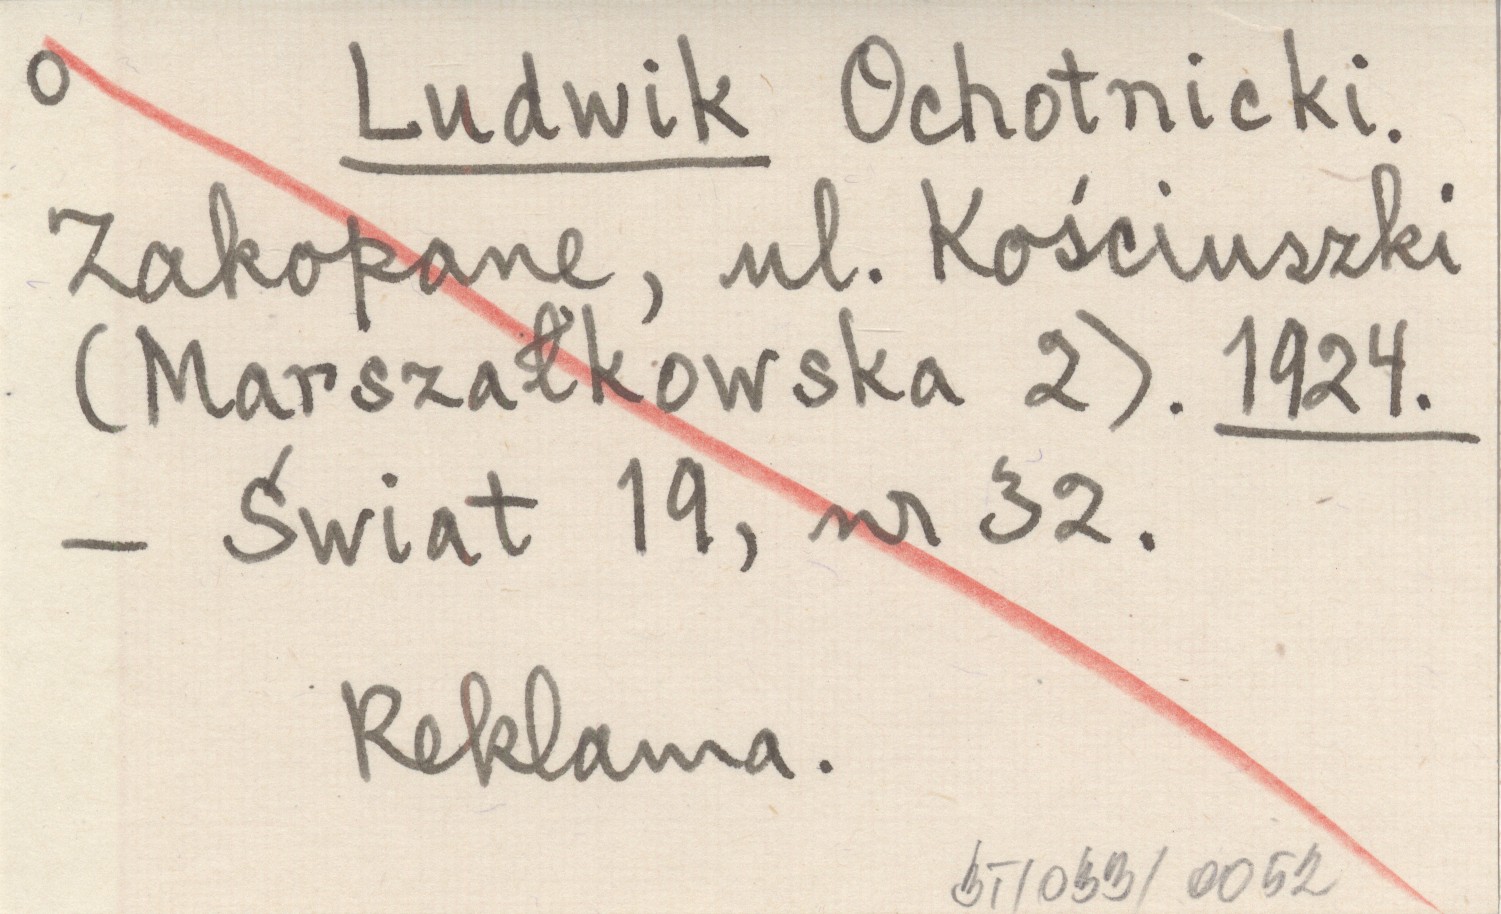 o Ludwik Ochotnicki.
Zakopane, ul. Kościuszki
(Marszałkowska 2). 1924.
– Świat 19, nr 32.
Reklama.
0052